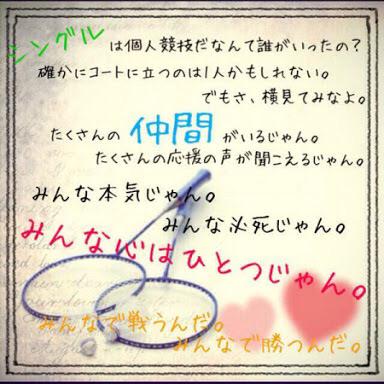 シングルは個人競技だなんて誰がいったの？
確かにコートに立つのは1人かもしれない。
でもさ、横見てみなよ。
たくさんの仲間がいるじゃん。
たくさんの応援の声が聞こえるじゃん。
みんな本気じゃん。
みんな必死じゃん。
みんな心はひとつじゃん。
みんなで戦うんだ。
みんなで勝つんだ。